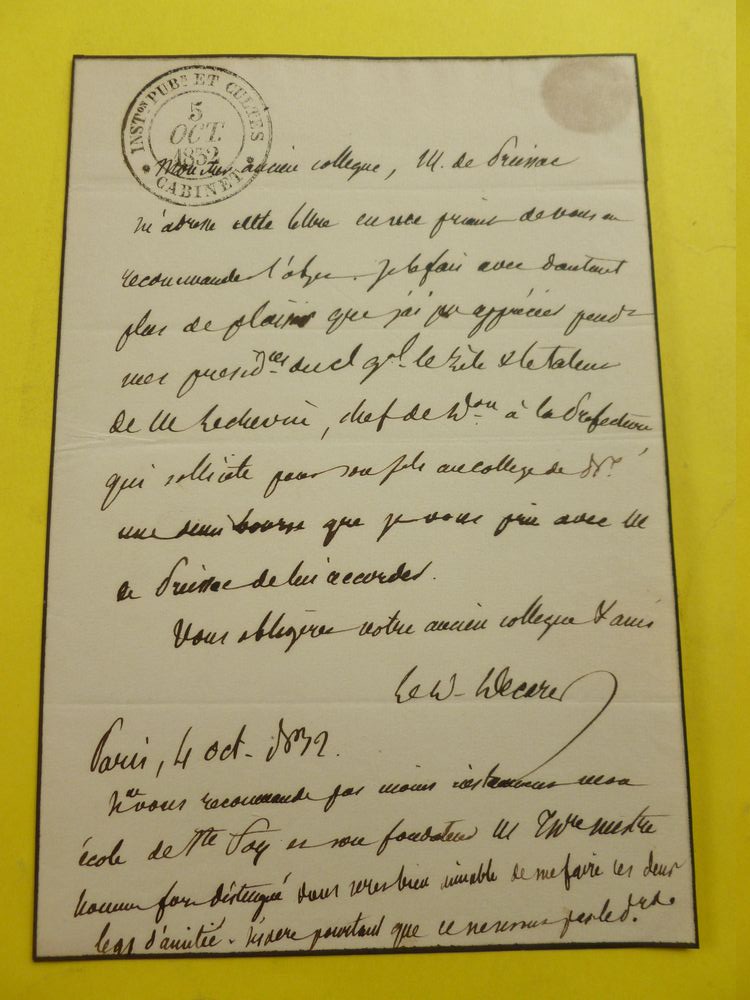 INST.ON PUB.E ET CULTES
5
OCT.
1852
CABINET
Mon cher ancien collegue, M. de Preissac
m'adresse cette lettre en me priant de vous en
recommander l'objet. Je le fais avec d'autant
plus de plaisir que j'ai pu apprécier pend.t
mes presid.ces du c.l g.l le zèle & le talent
de M , chef de D.on à la Préfecture
qui sollicite pour son fils au college de
une demi bourse que je vous prie avec M
de Preissac de lui accorder.
Vous obligerez votre ancien collegue & ami
Le
Paris, 4 oct. 1852.
vous recommande pas moins instamment mon
école de Ste Foy et son fondateur M
homme fort distingué vous serez bien aimable de me faire ces deux
legs d'amitié. J'espère pourtant que ce ne sera pas le d.